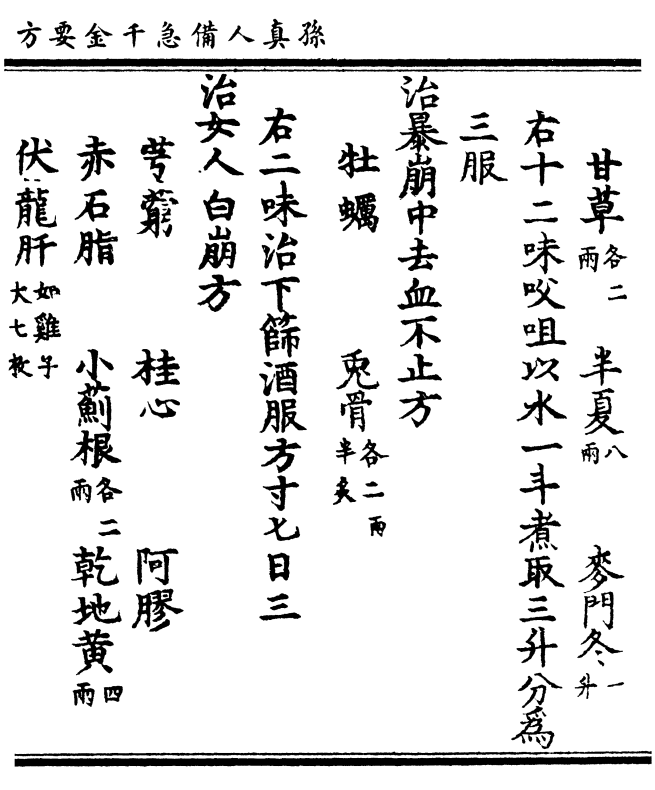 孫真人備急千金要方
甘草各二兩 半夏八兩 麥門冬一升
右十二味㕮咀以水一斗煮取三升分爲
三服
治暴崩中去血不止方
牡蠣 兎骨各二兩半炙
右二味治下篩酒服方寸七日三
治女人白崩方
芎藭 桂心 阿膠
赤石脂 小薊根各二兩 乾地黄四兩
伏龍肝如雞子大七枚